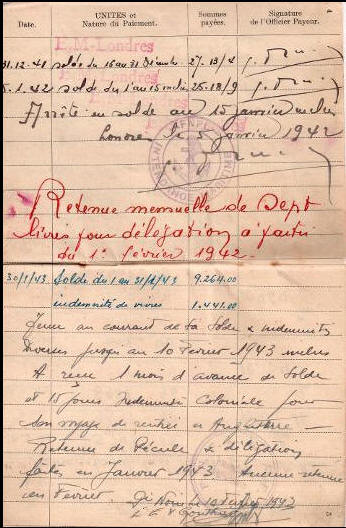 Date.
UNITÉS et
Nature du Paiement.
Sommes
payées.
Signature
de l'Officier Payeur.
E.M-Londres
31.12-41 solde du 16 au 31 Décembre 27-13/4
5.1.42 solde du 1 au 15 inclus 25.18/9
Arrêté en solde au 15 janvier inclus
Londres le 5 janvier 1942
Retenue mensuelle de Sept
livres pour délégation à partir
du 1° février 1942.
30/1/43 Solde du 1 au 31/1/43 9.264.00
indemnité de vivres 1.441.00
au courant de sa Solde & indemnités
Diverses jusqu'au 10 Février 1943 inclus
A reçu 1 mois d'avance de Solde
et 15 jours indemnité Coloniale pour
son voyage de rentrée en Angleterre —
Retenue de Pécule & délégation
faites en Janvier 1943 Aucune retenue
en Février.
1943